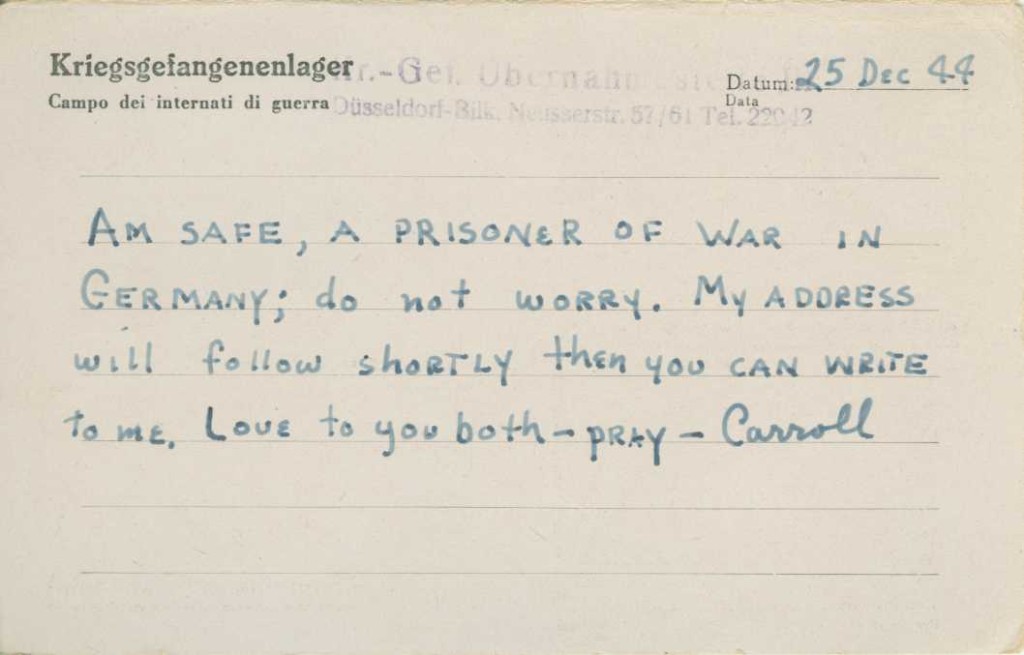 Kriegsgefangenenlager
Datum: 25 Dec 44
Campo dei internati di guerra
Data
Düsseldorf-Bilk, Neusserstr. 57/61 Tel.
AM SAFE, A PRISONER OF WAR IN
GERMANY; do not WORRY. My ADDRESS
will follow shORTLY then you CAN WRITE
to me. Love to you both - PRAY - Carroll